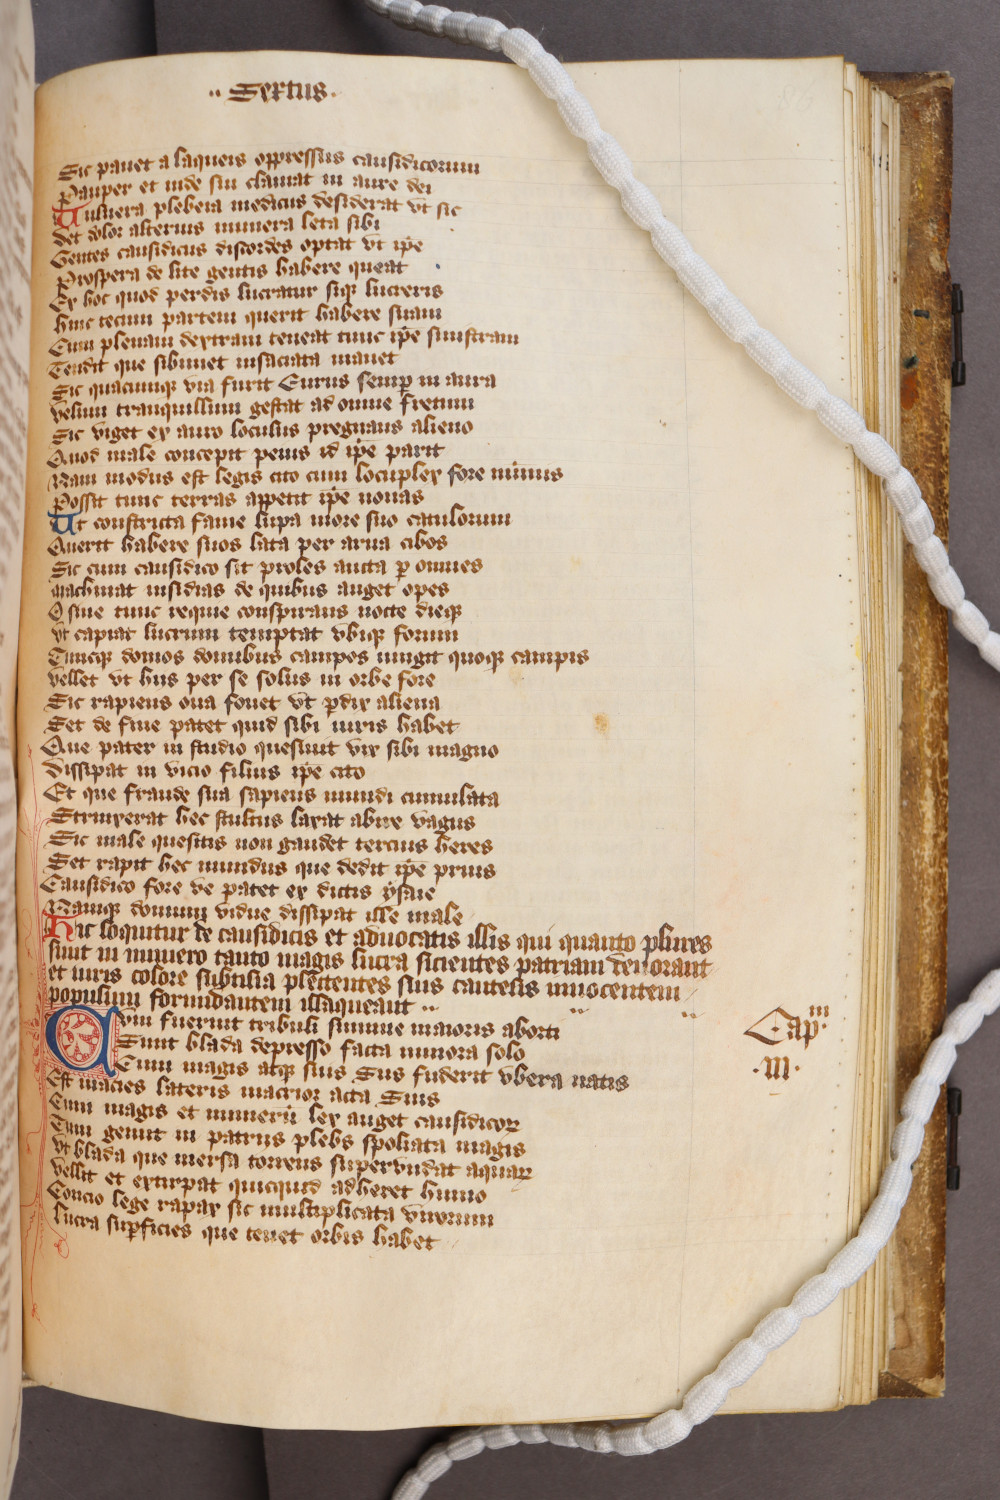 ·· Sextus ·
Sic pauet a laqueis oppressus causidicorum
Pauper et inde sui clamat in aure dei
Uulnera plebeia medicus desiderat vt sic
Det dolor alterius munera leta sibi
Gentes causidicus discordes optat vt ip̄e
Prospera de lite gentis habere queat
Ex hoc quod perdis lucratur siqꝫ lucreris
Hinc tecum partem querit habere suam
Cum plenam dextram teneat tunc ip̄e sinistram
Tendit que sibimet insaciata manet
Sic quacumqꝫ via furit Eurus semꝑ in aura
Velum tranquillum gestat ad omne fretum
Sic viget ex auro loculus pregnans alieno
Quod male concepit peius id ip̄e parit
Nam modus est legis cito cum locuplex fore nummus
Possit tunc terras appetit ip̄e nouas
Ut constricta fame lupa more suo catulorum
Querit habere suos lata per arua cibos
Sic cum causidico sit proles aucta ꝑ omnes
Machinat insidias de quibus auget opes
O sine tunc requie conspirans nocte dieqꝫ
Vt capiat lucrum temptat vbiqꝫ forum
Tuncqꝫ domos domibus campos iungit quoqꝫ campis
Vellet vt hiis per se solus in orbe fore
Sic rapiens oua fouet vt ꝑdix aliena
Set de fine patet quid sibi iuris habet
Que pater in studio quesiuit vix sibi magno
Dissipat in vicio filius ip̄e cito
Et que fraude sua sapiens mundi cumulata
Struxerat hec stultus laxat abire vagus
Sic male quesitis non gaudet tercius heres
Set rapit hec mundus que dedit ip̄e prius
Causidico fore ve patet ex dictis ysaie
Namqꝫ domum vidue dissipat ille male
Hic loquitur de causidicis et aduocatis illis qui quanto plures
sunt in numero tanto magis lucra sicientes patriam deuorant
et iuris colore subtilia plectentes suis cautelis innocentem
populum formidantem illaqueant ··
Cap̄m
·III·
Cum fuerint tribuli summe maioris aborti
Sunt blada depresso facta minora solo
Cum magis atqꝫ suis Sus fuderit vbera natis
Est macies lateris macrior acta Suis
Cum magis et numerū lex auget causidicoꝝ
Tam gemit in patriis plebs spoliata magis
Vt blada que mersa torrens supervndat aquaꝝ
Vellit et extirpat quicquid adheret humo
Concio lege rapax sic multiplicata virorum
Lucra suꝑficies que tenet orbis habet